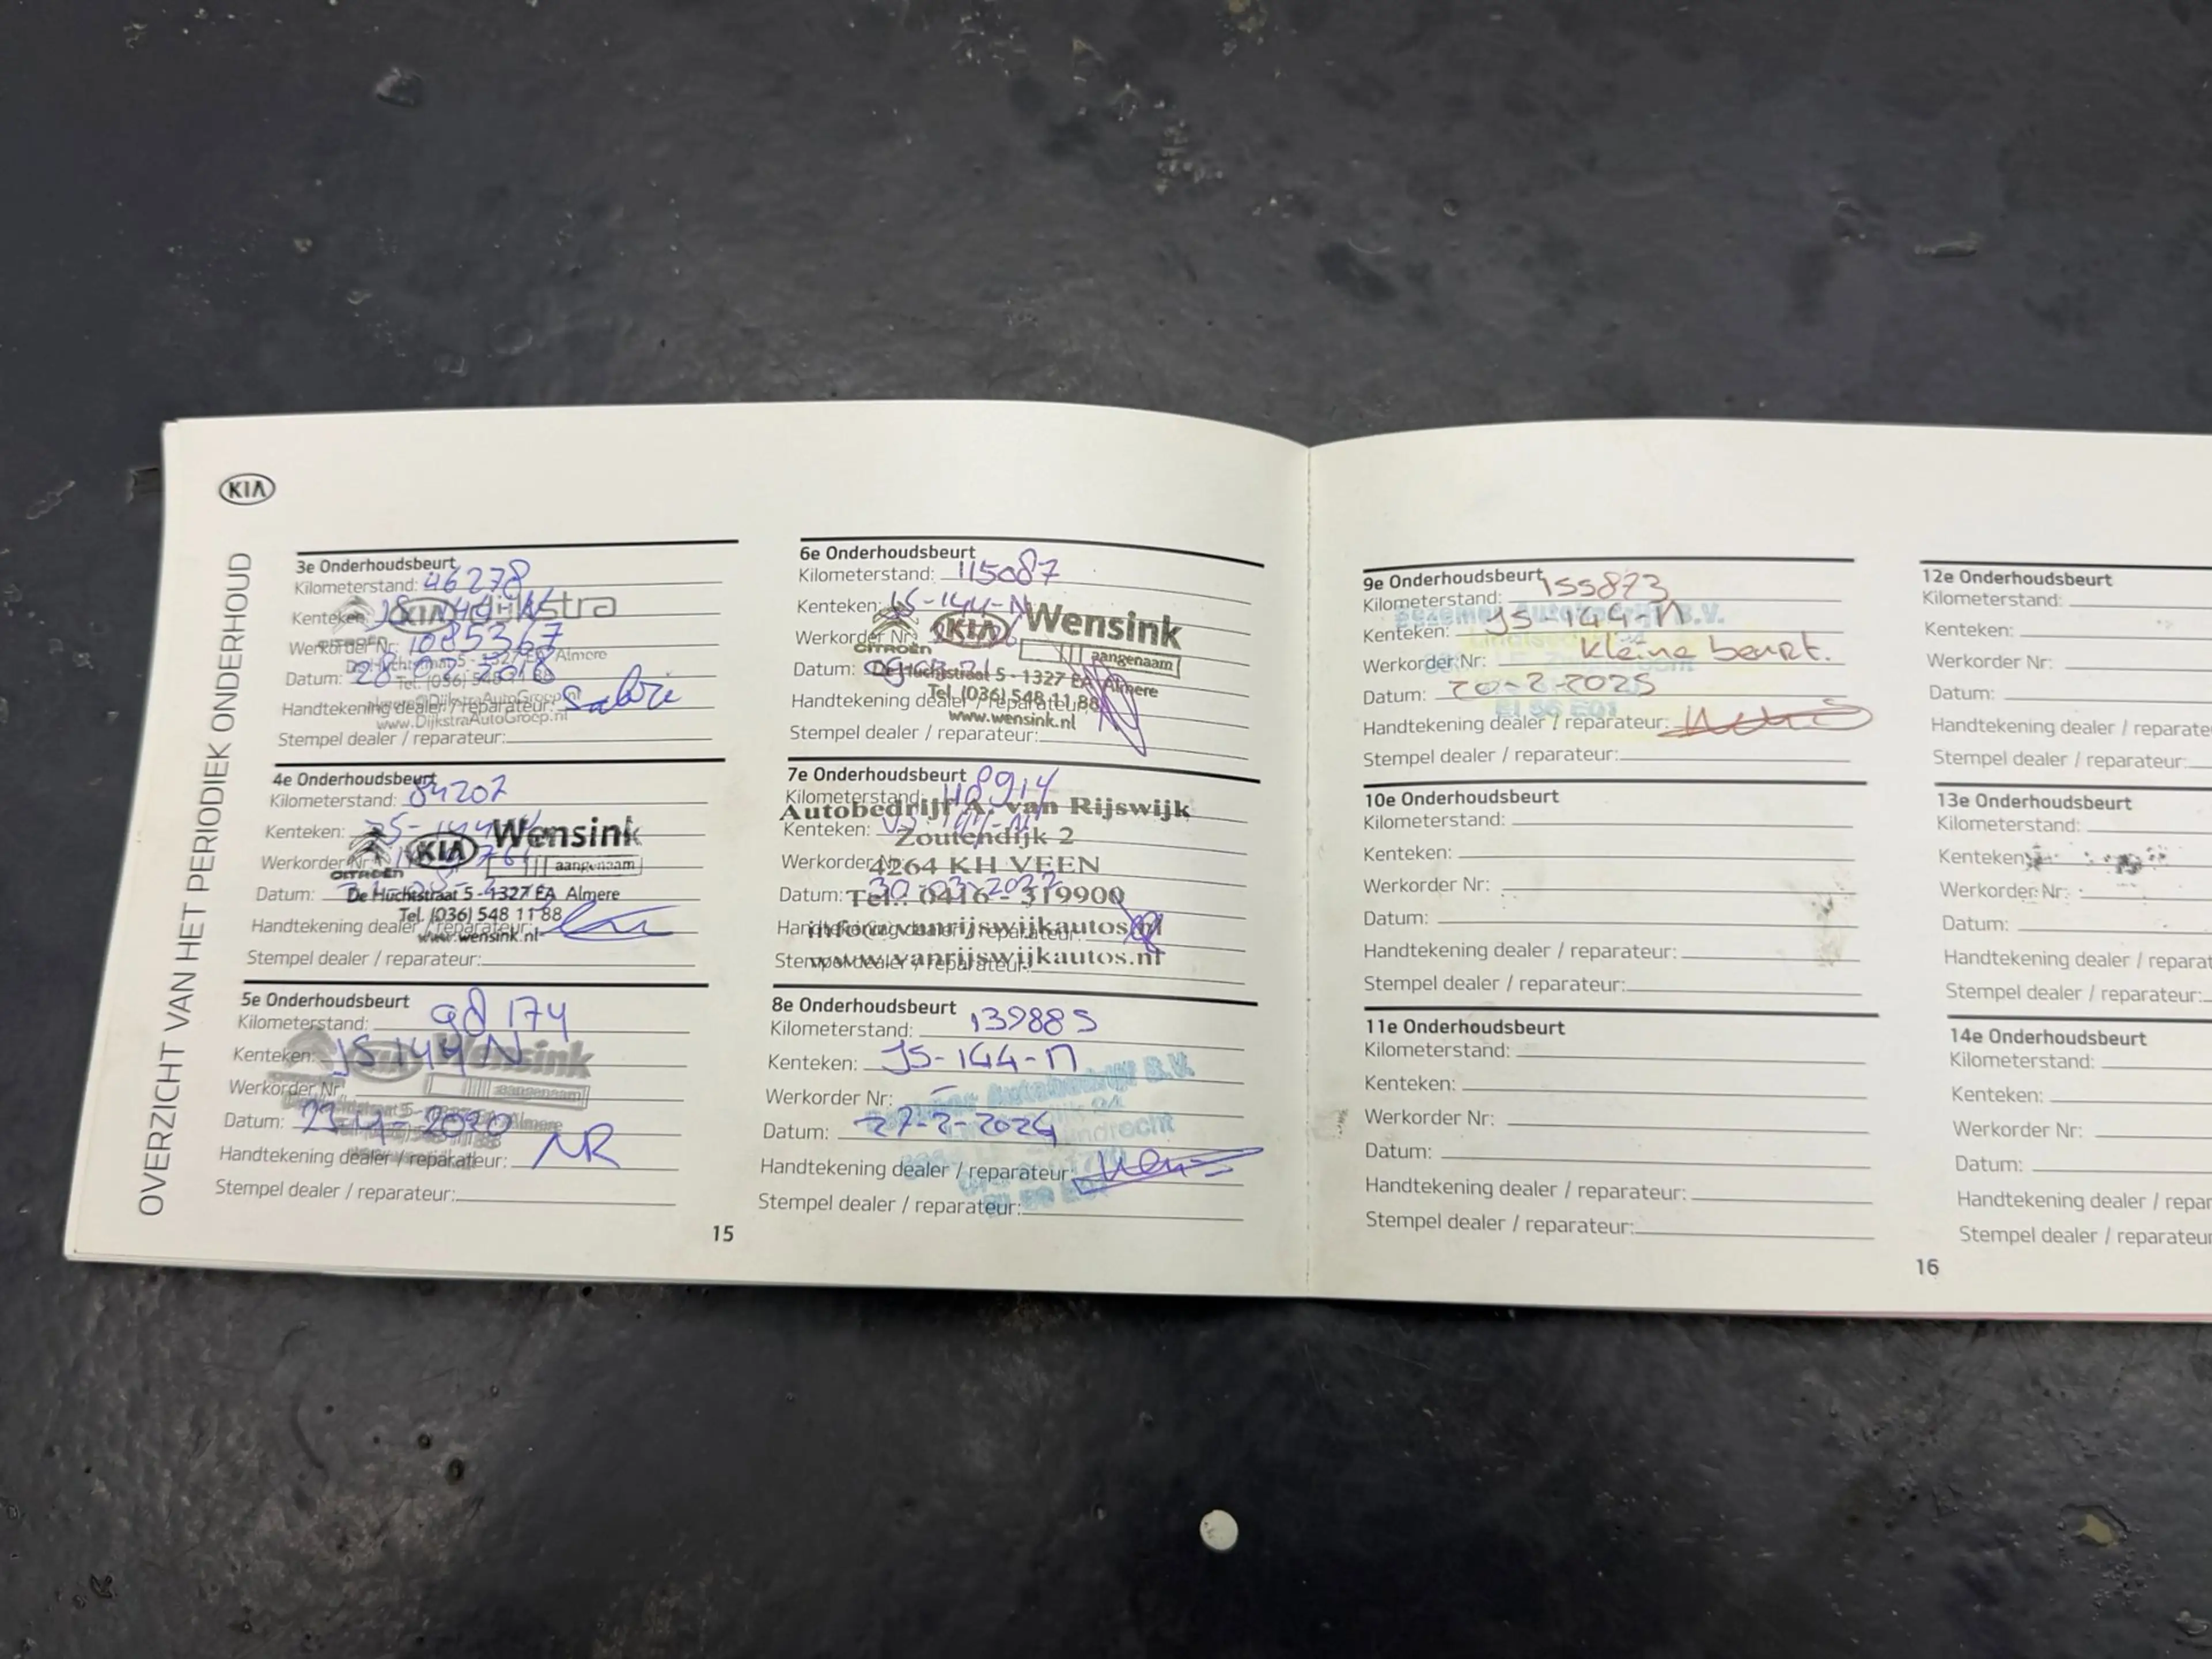 KIA
OVERZICHT VAN HET PERIODIEK ONDERHOUD
3e Onderhoudsbeurt
Kilometerstand: 46278
Kenteken:
KIA Dijkstra
CITROËN
Werkorder Nr: 1085367
Tel. (036) 548 11 88
Almere
Datum: 28-02-2018
Handtekening dealer / reparateur:
www.DijkstraAutoGroep.nl
Stempel dealer / reparateur:
4e Onderhoudsbeurt
Kilometerstand: 84207
Kenteken:
KIA Wensink
aangenaam
CITROËN
Werkorder Nr:
Datum:
De Huchtstraat 5 - 1327 EA Almere
Tel. (036) 548 11 88
Handtekening dealer / reparateur:
www.wensink.nl
Stempel dealer / reparateur:
5e Onderhoudsbeurt
Kilometerstand: 98174
Kenteken: JS144N
Wensink
aangenaam
Werkorder Nr:
Datum: 2020
Almere
Handtekening dealer / reparateur: NR
Stempel dealer / reparateur:
15
6e Onderhoudsbeurt
Kilometerstand: 115087
Kenteken: JS-144-N
KIA Wensink
aangenaam
CITROËN
Werkorder Nr:
Datum:
De Huchtstraat 5 - 1327 EA Almere
Tel. (036) 548 11 88
Handtekening dealer / reparateur:
www.wensink.nl
Stempel dealer / reparateur:
7e Onderhoudsbeurt
Kilometerstand:
Autobedrijf A. van Rijswijk
Kenteken:
Zoutendijk 2
Werkorder Nr:
4264 KH VEEN
Datum: 30-03-2022
Tel.: 0416 - 319900
Handtekening dealer / reparateur:
www.vanrijswijkautos.nl
Stempel dealer / reparateur:
8e Onderhoudsbeurt
Kilometerstand: 139885
Kenteken: JS-144-N
Autobedrijf B.V.
Werkorder Nr: -
Datum: 27-2-2024
Handtekening dealer / reparateur:
Stempel dealer / reparateur:
9e Onderhoudsbeurt
Kilometerstand: 155873
Kenteken: JS-144-N
B.V.
Werkorder Nr: kleine beurt.
Datum: 20-2-2025
Handtekening dealer / reparateur:
Stempel dealer / reparateur:
10e Onderhoudsbeurt
Kilometerstand:
Kenteken:
Werkorder Nr:
Datum:
Handtekening dealer / reparateur:
Stempel dealer / reparateur:
11e Onderhoudsbeurt
Kilometerstand:
Kenteken:
Werkorder Nr:
Datum:
Handtekening dealer / reparateur:
Stempel dealer / reparateur:
12e Onderhoudsbeurt
Kilometerstand:
Kenteken:
Werkorder Nr:
Datum:
Handtekening dealer / reparate
Stempel dealer / reparateur:
13e Onderhoudsbeurt
Kilometerstand:
Kenteken:
Werkorder Nr:
Datum:
Handtekening dealer / reparat
Stempel dealer / reparateur:
14e Onderhoudsbeurt
Kilometerstand:
Kenteken:
Werkorder Nr:
Datum:
Handtekening dealer / repar
Stempel dealer / reparateur
16